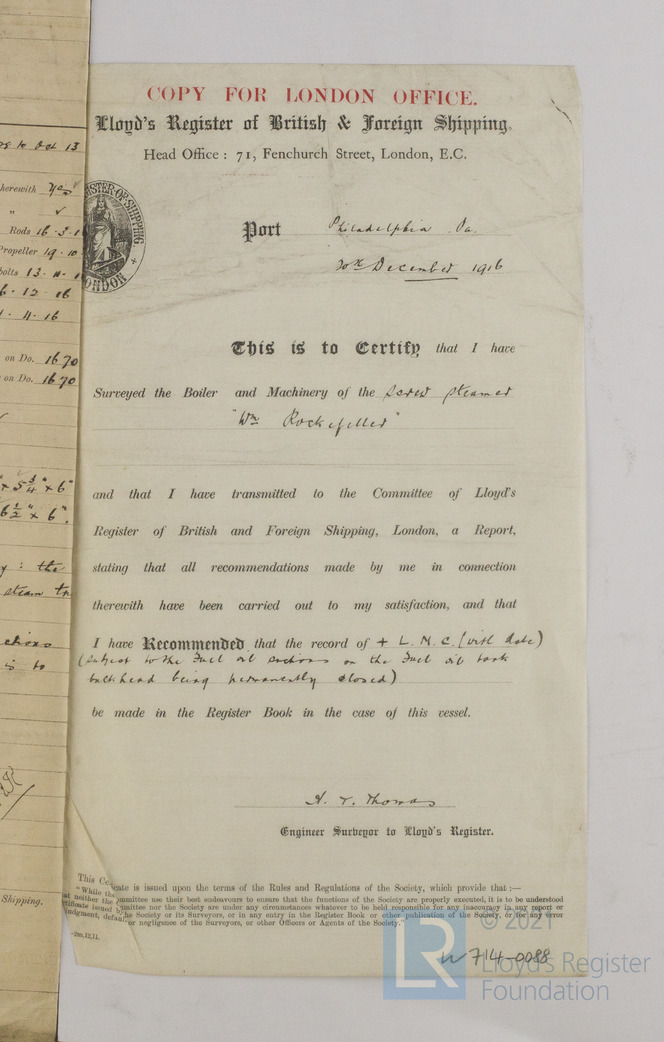 COPY FOR LONDON OFFICE.
Lloyd's Register of British & Foreign Shipping.
Head Office: 71, Fenchurch Street, London, E.C.
to Oct 13
herewith Yes
" ✓
Rods 16·3·1
Propeller 19·10
bolts 13·11·1
6·12·16
1·11·16
on Do. 1670
on Do. 1670
5 3/4" × 6"
6 1/2" × 6".
: the
steam
is to
Shipping.
REGISTER OF SHIPPING
LONDON
Port Philadelphia Pa.
December 1916
This is to Certify that I have
Surveyed the Boiler and Machinery of the screw steamer
"Wm Rockefeller"
and that I have transmitted to the Committee of Lloyd's
Register of British and Foreign Shipping, London, a Report,
stating that all recommendations made by me in connection
therewith have been carried out to my satisfaction, and that
I have Recommended that the record of + L.M.C. (with date)
(subject to the Fuel oil suctions on the Fuel oil tank
bulkhead being permanently closed)
be made in the Register Book in the case of this vessel.
A. T. Thomas
Engineer Surveyor to Lloyd's Register.
This Ce icate is issued upon the terms of the Rules and Regulations of the Society, which provide that :—
"While the ommittee use their best endeavours to ensure that the functions of the Society are properly executed, it is to be understood
at neither the mmittee nor the Society are under any circumstances whatever to be held responsible for any inaccuracy in any report or
rtificate issued by the Society or its Surveyors, or in any entry in the Register Book or other publication of the Society, or for any error
judgment, default or negligence of the Surveyors, or other Officers or Agents of the Society."
W714-0088
© 2021
LR
Lloyd's Register
Foundation